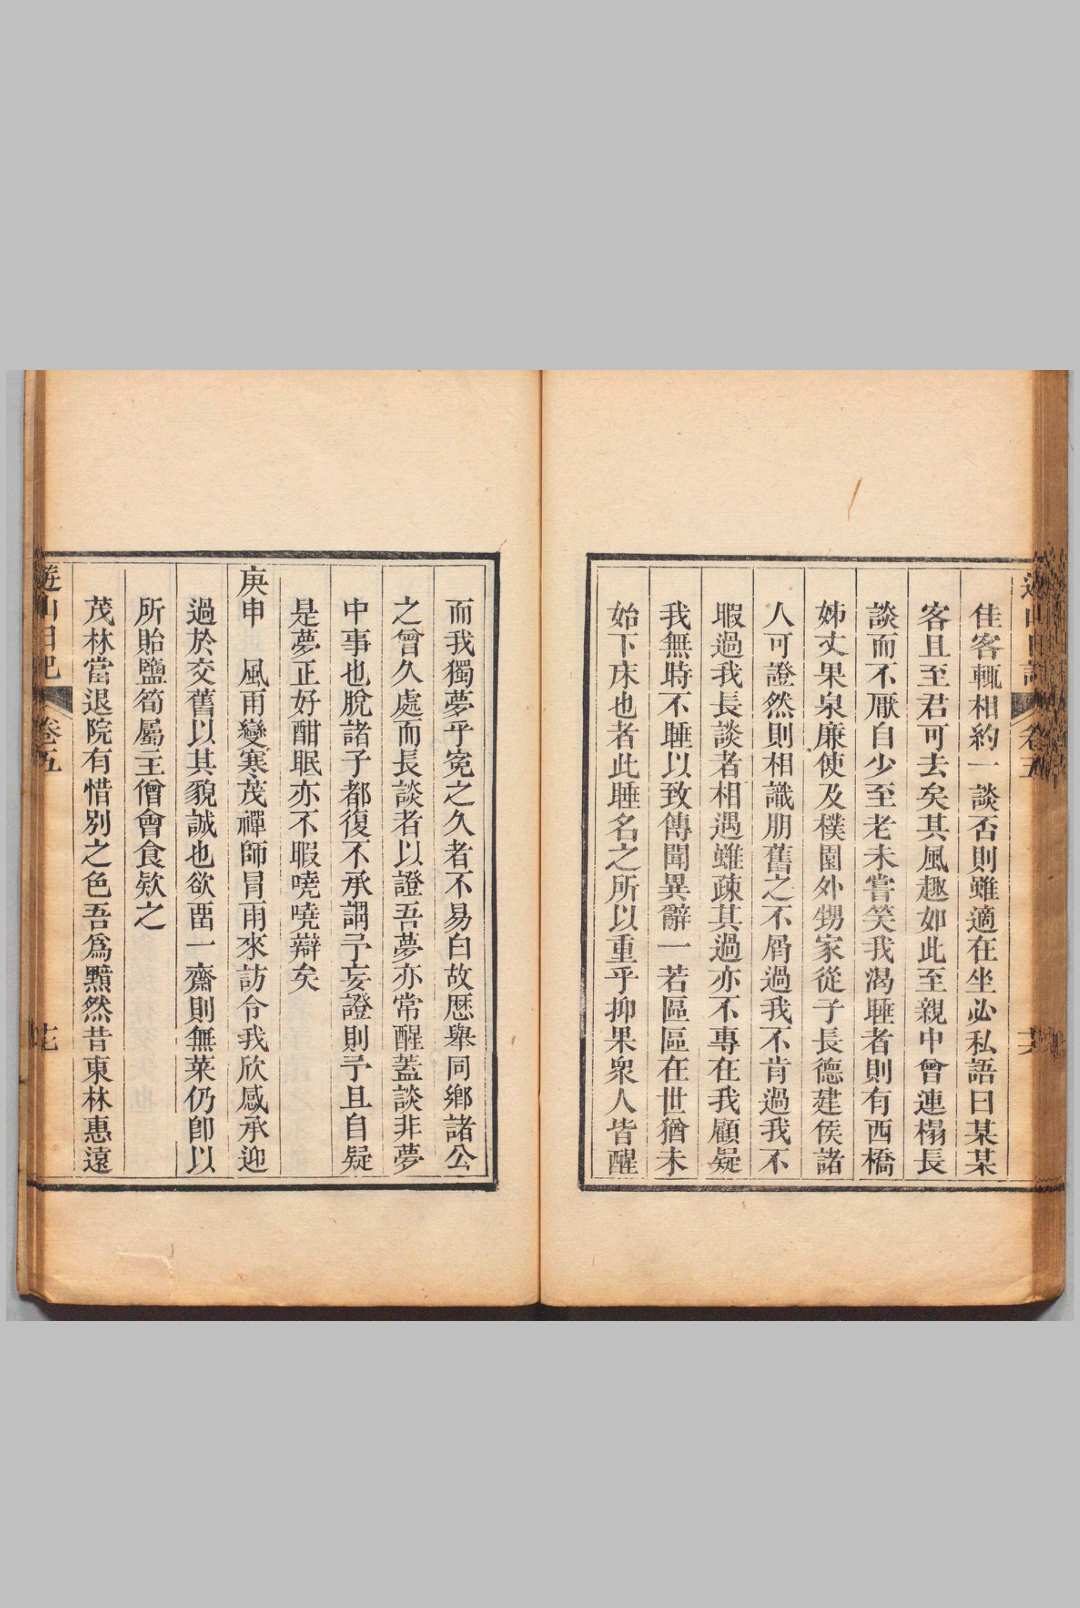 佳客輒相約一談否則雖適在坐必私語曰某某
客且至君可去矣其風趣如此至親中曾連榻長
談而不厭自少至老未嘗笑我渴睡者則有西橋
姊丈果泉廉使及樸園外甥家從子長德建侯諸
人可證然則相識朋舊之不屑過我不肯過我不
暇過我長談者相遇雖疎其過亦不專在我顧疑
我無時不睡以致傳聞異辭一若區區在世猶未
始下床也者此睡名之所以重乎抑果衆人皆醒
而我獨夢乎寃之久者不易白故歷舉同鄉諸公
之曾久處而長談者以證吾夢亦常醒蓋談非夢
中事也脫諸子都復不承謂予妄證則予且自疑
是夢正好酣眠亦不暇嘵嘵辯矣
庚申 風雨變寒茂禪師冒雨來訪令我欣感承迎
過於交舊以其貌誠也欲畱一齋則無菜仍卽以
所貽鹽筍屬主僧會食欵之
茂林當退院有惜別之色吾爲黯然昔東林惠遠
遊山日記 卷五